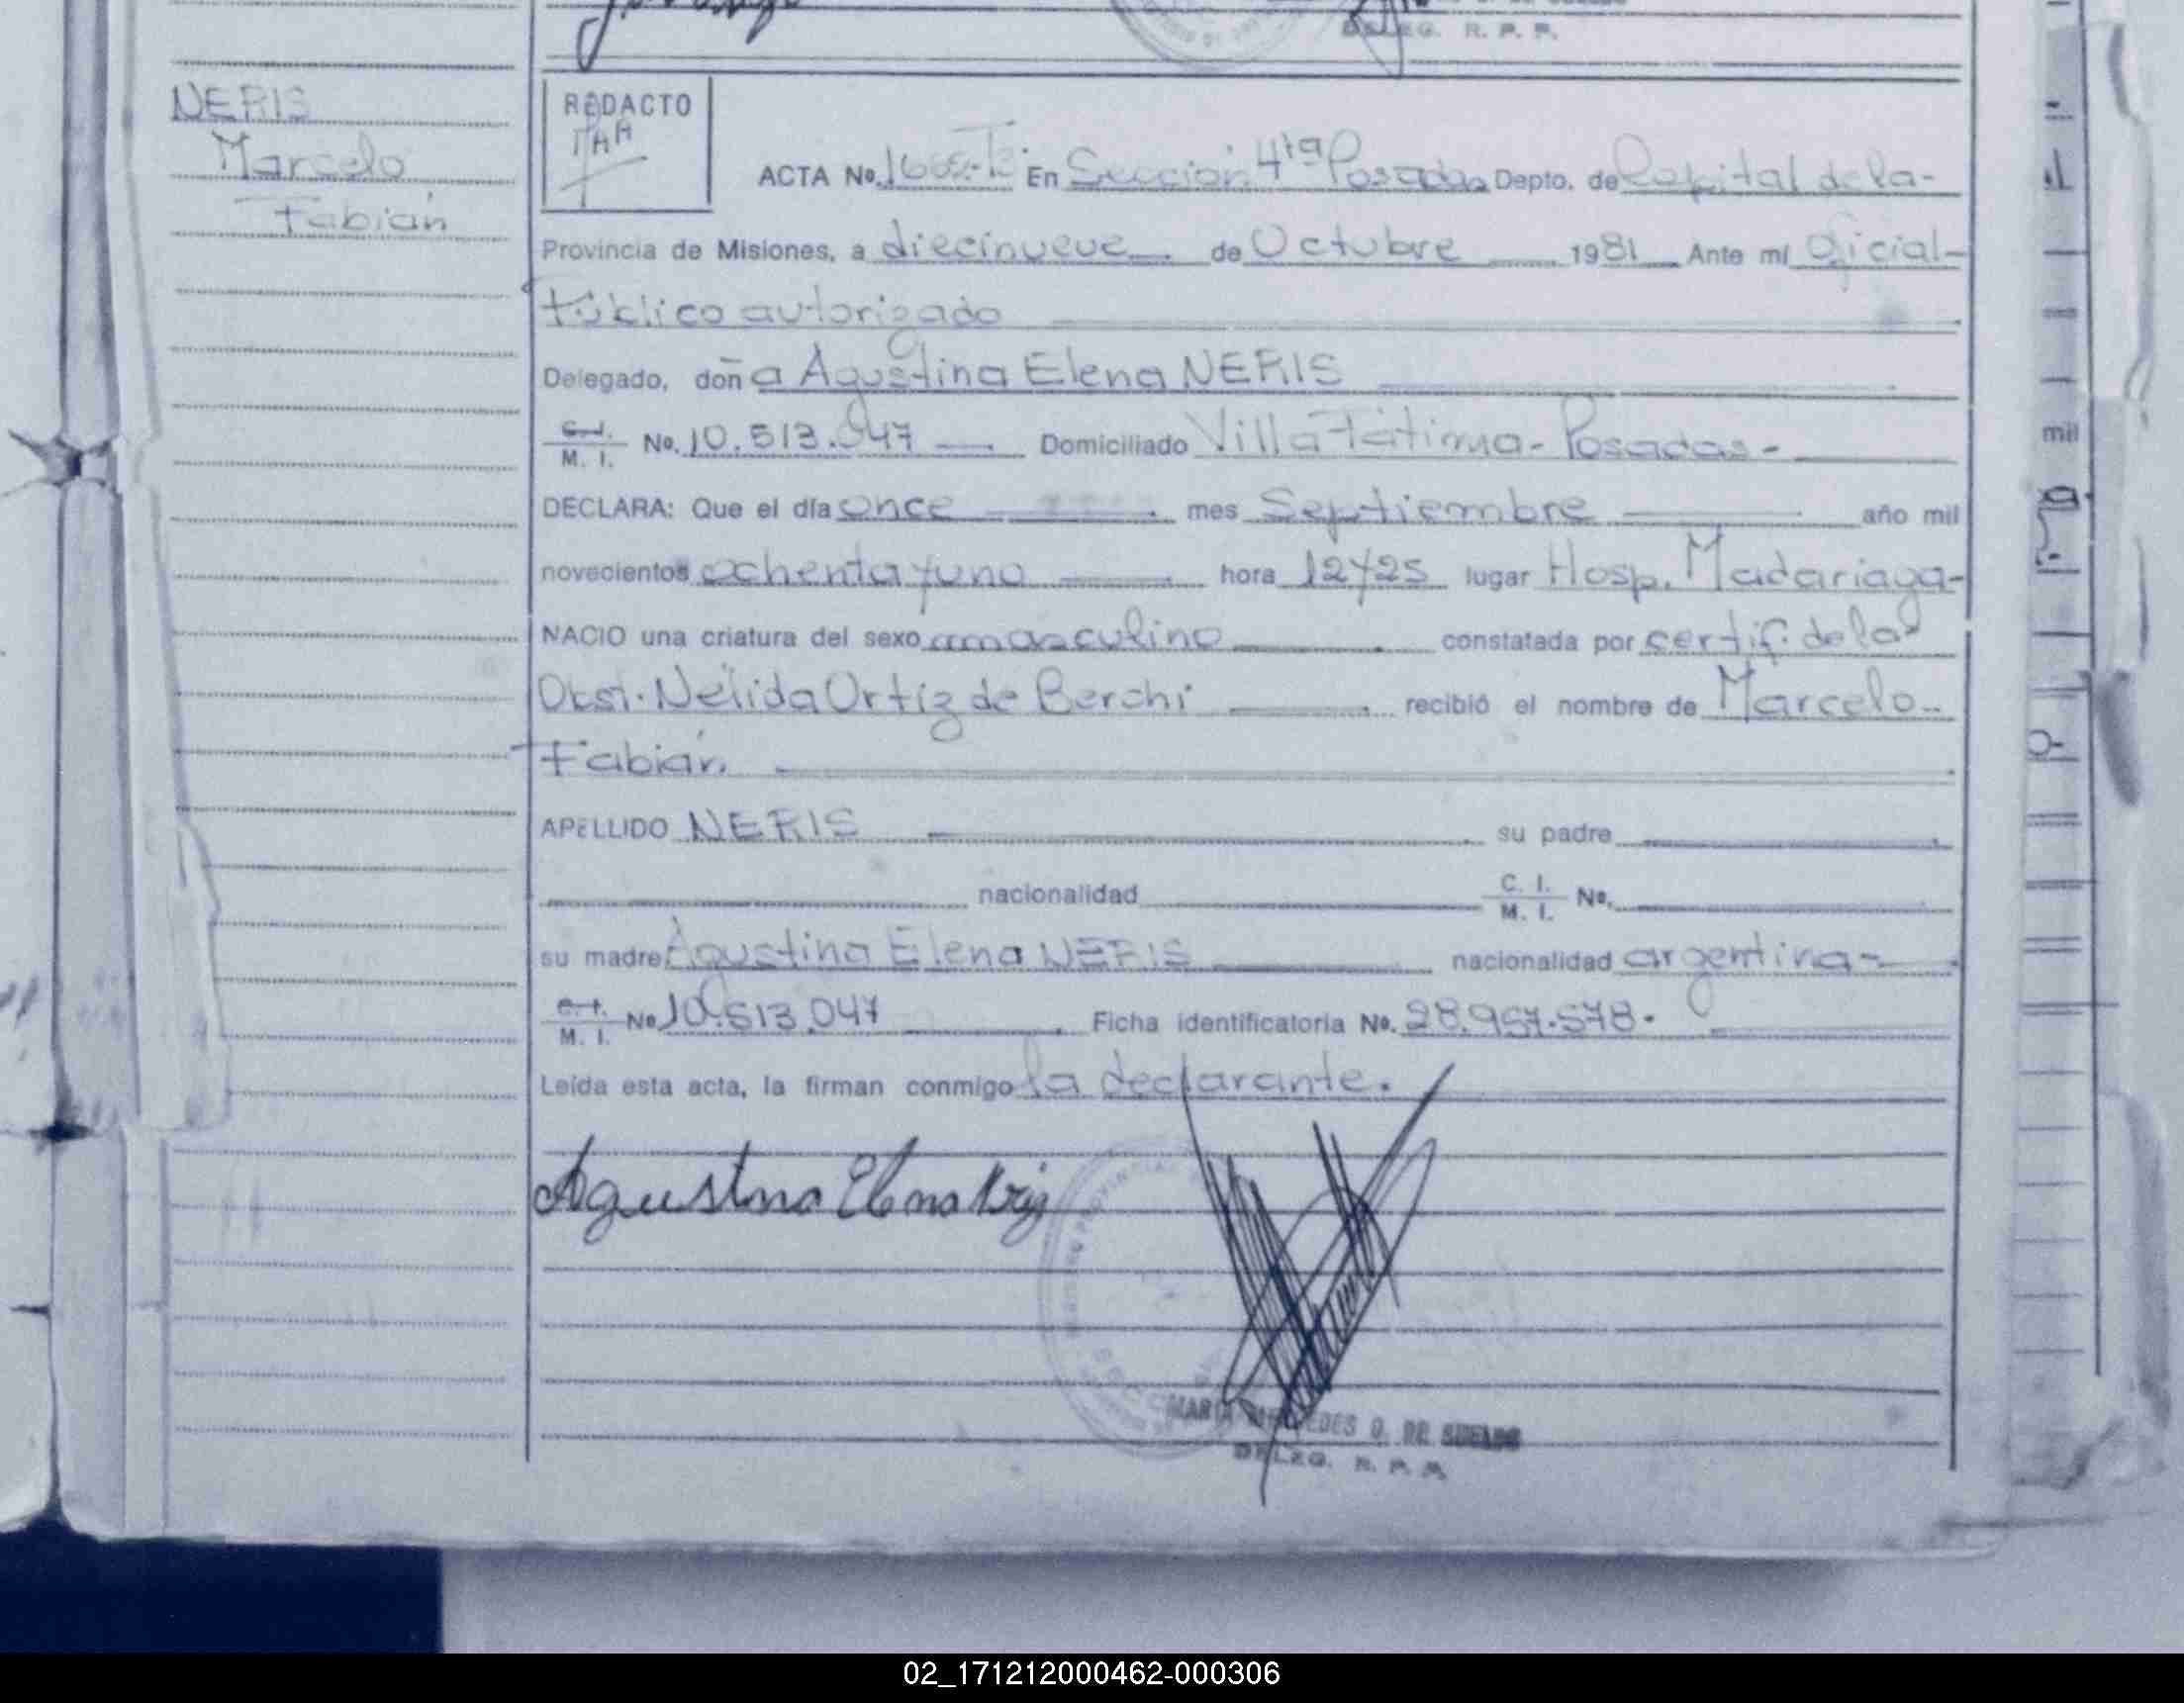 DELEG. R. P. P.
NERIS
Marcelo
Fabián
REDACTO
ACTA No. En Sección 4ta Posadas Depto. de Capital de la-
Provincia de Misiones, a diecinueve de Octubre 1981 Ante mí Oficial-
Público autorizado
Delegado, doña Agustina Elena NERIS
C. I.
M. I. No. 10.513.047 Domiciliado Villa Fátima - Posadas -
DECLARA: Que el día once mes Septiembre año mil
novecientos ochenta y uno hora 12 y 25 lugar Hosp. Madariaga-
NACIO una criatura del sexo masculino constatada por certif. de la
Obst. Nélida Ortiz de Berchi recibió el nombre de Marcelo
Fabián
APELLIDO NERIS su padre
nacionalidad C. I.
M. I. No.
su madre Agustina Elena NERIS nacionalidad argentina-
C. I.
M. I. No 10.513.047 Ficha identificatoria No. 28.957.578.
Leída esta acta, la firman conmigo la declarante.
Agustina Elena Neris
MARIA MERCEDES O. DE
DELEG. R. P. P.
mil
02_171212000462-000306